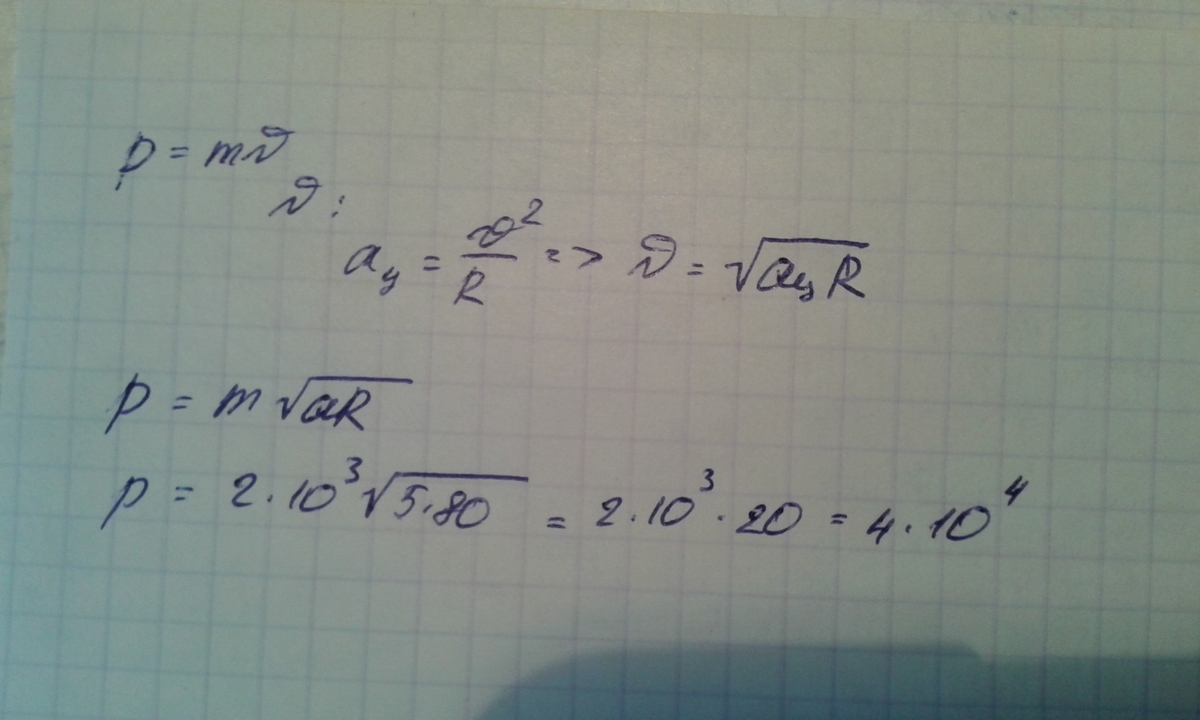 p = mυ
υ:
aц = υ²/R => υ = √(aцR)
p = m√(aR)
p = 2·10³√(5·80) = 2·10³·20 = 4·10⁴